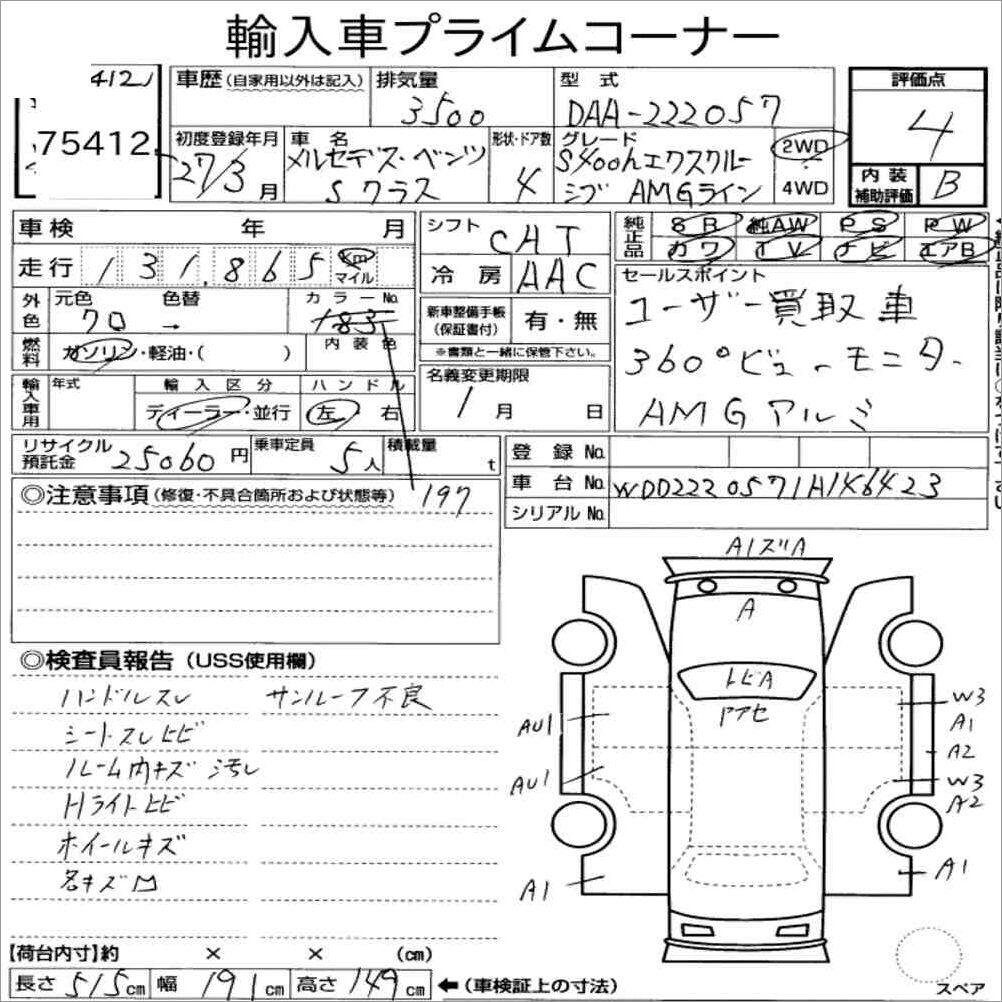 輸入車プライムコーナー
412
75412
車歴(自家用以外は記入)
排気量
3500
型式
DAA-222057
評価点
4
初度登録年月
27/3月
車名
メルセデス・ベンツ
Sクラス
形状・ドア数
4
グレード
S400hエクスクルー
シブ AMGライン
2WD
4WD
内装
補助評価
B
車検 年 月
シフト
CAT
純正品
SR 純AW PS PW
カワ TV ナビ エアB
走行 131,865 km
マイル
冷房
AAC
セールスポイント
ユーザー買取車
360°ビューモニター
AMGアルミ
外色
元色 色替
70 →
カラーNo.
183
新車整備手帳
(保証書付)
有・無
※書類と一緒に保管下さい。
燃料
ガソリン・軽油・( )
内装色
輸入車用
年式
輸入区分
ディーラー・並行
ハンドル
左 右
名義変更期限
1月 日
リサイクル
預託金
25060円
乗車定員
5人
積載量
t
登録No.
車台No.
WDD2220571A1K6423
シリアルNo.
◎注意事項(修復・不具合箇所および状態等)
197
◎検査員報告(USS使用欄)
ハンドルスレ サンルーフ不良
シートスレヒビ
ルーム内キズ 汚レ
Hライトヒビ
ホイールキズ
各キズM
A1ズリA
A
トビA
ヤアセ
AU1
AU1
A1
W3
A1
A2
W3
A2
A1
スペア
【荷台内寸】約 × × (cm)
長さ 515cm 幅 191cm 高さ 149cm ←(車検証上の寸法)